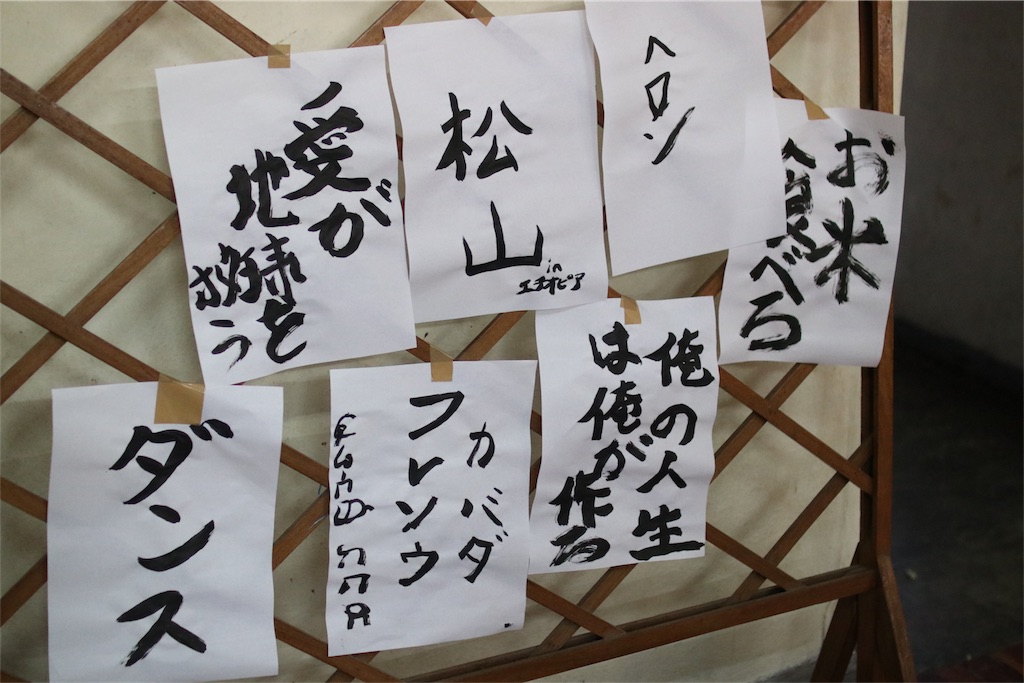 愛が
地球を
救う
松山
in
エチオピア
ヘロン
お米
食べる
ダンス
カバダ
フレソウ
俺の人生
は俺が
作る